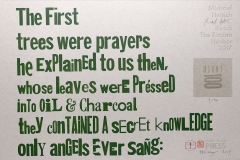 The First
trees were prayers
he Explained to us then,
whose leaves were Pressed
into Oil & Charcoal
they contained a secret knowledge
only angels ever sang:
PRESS